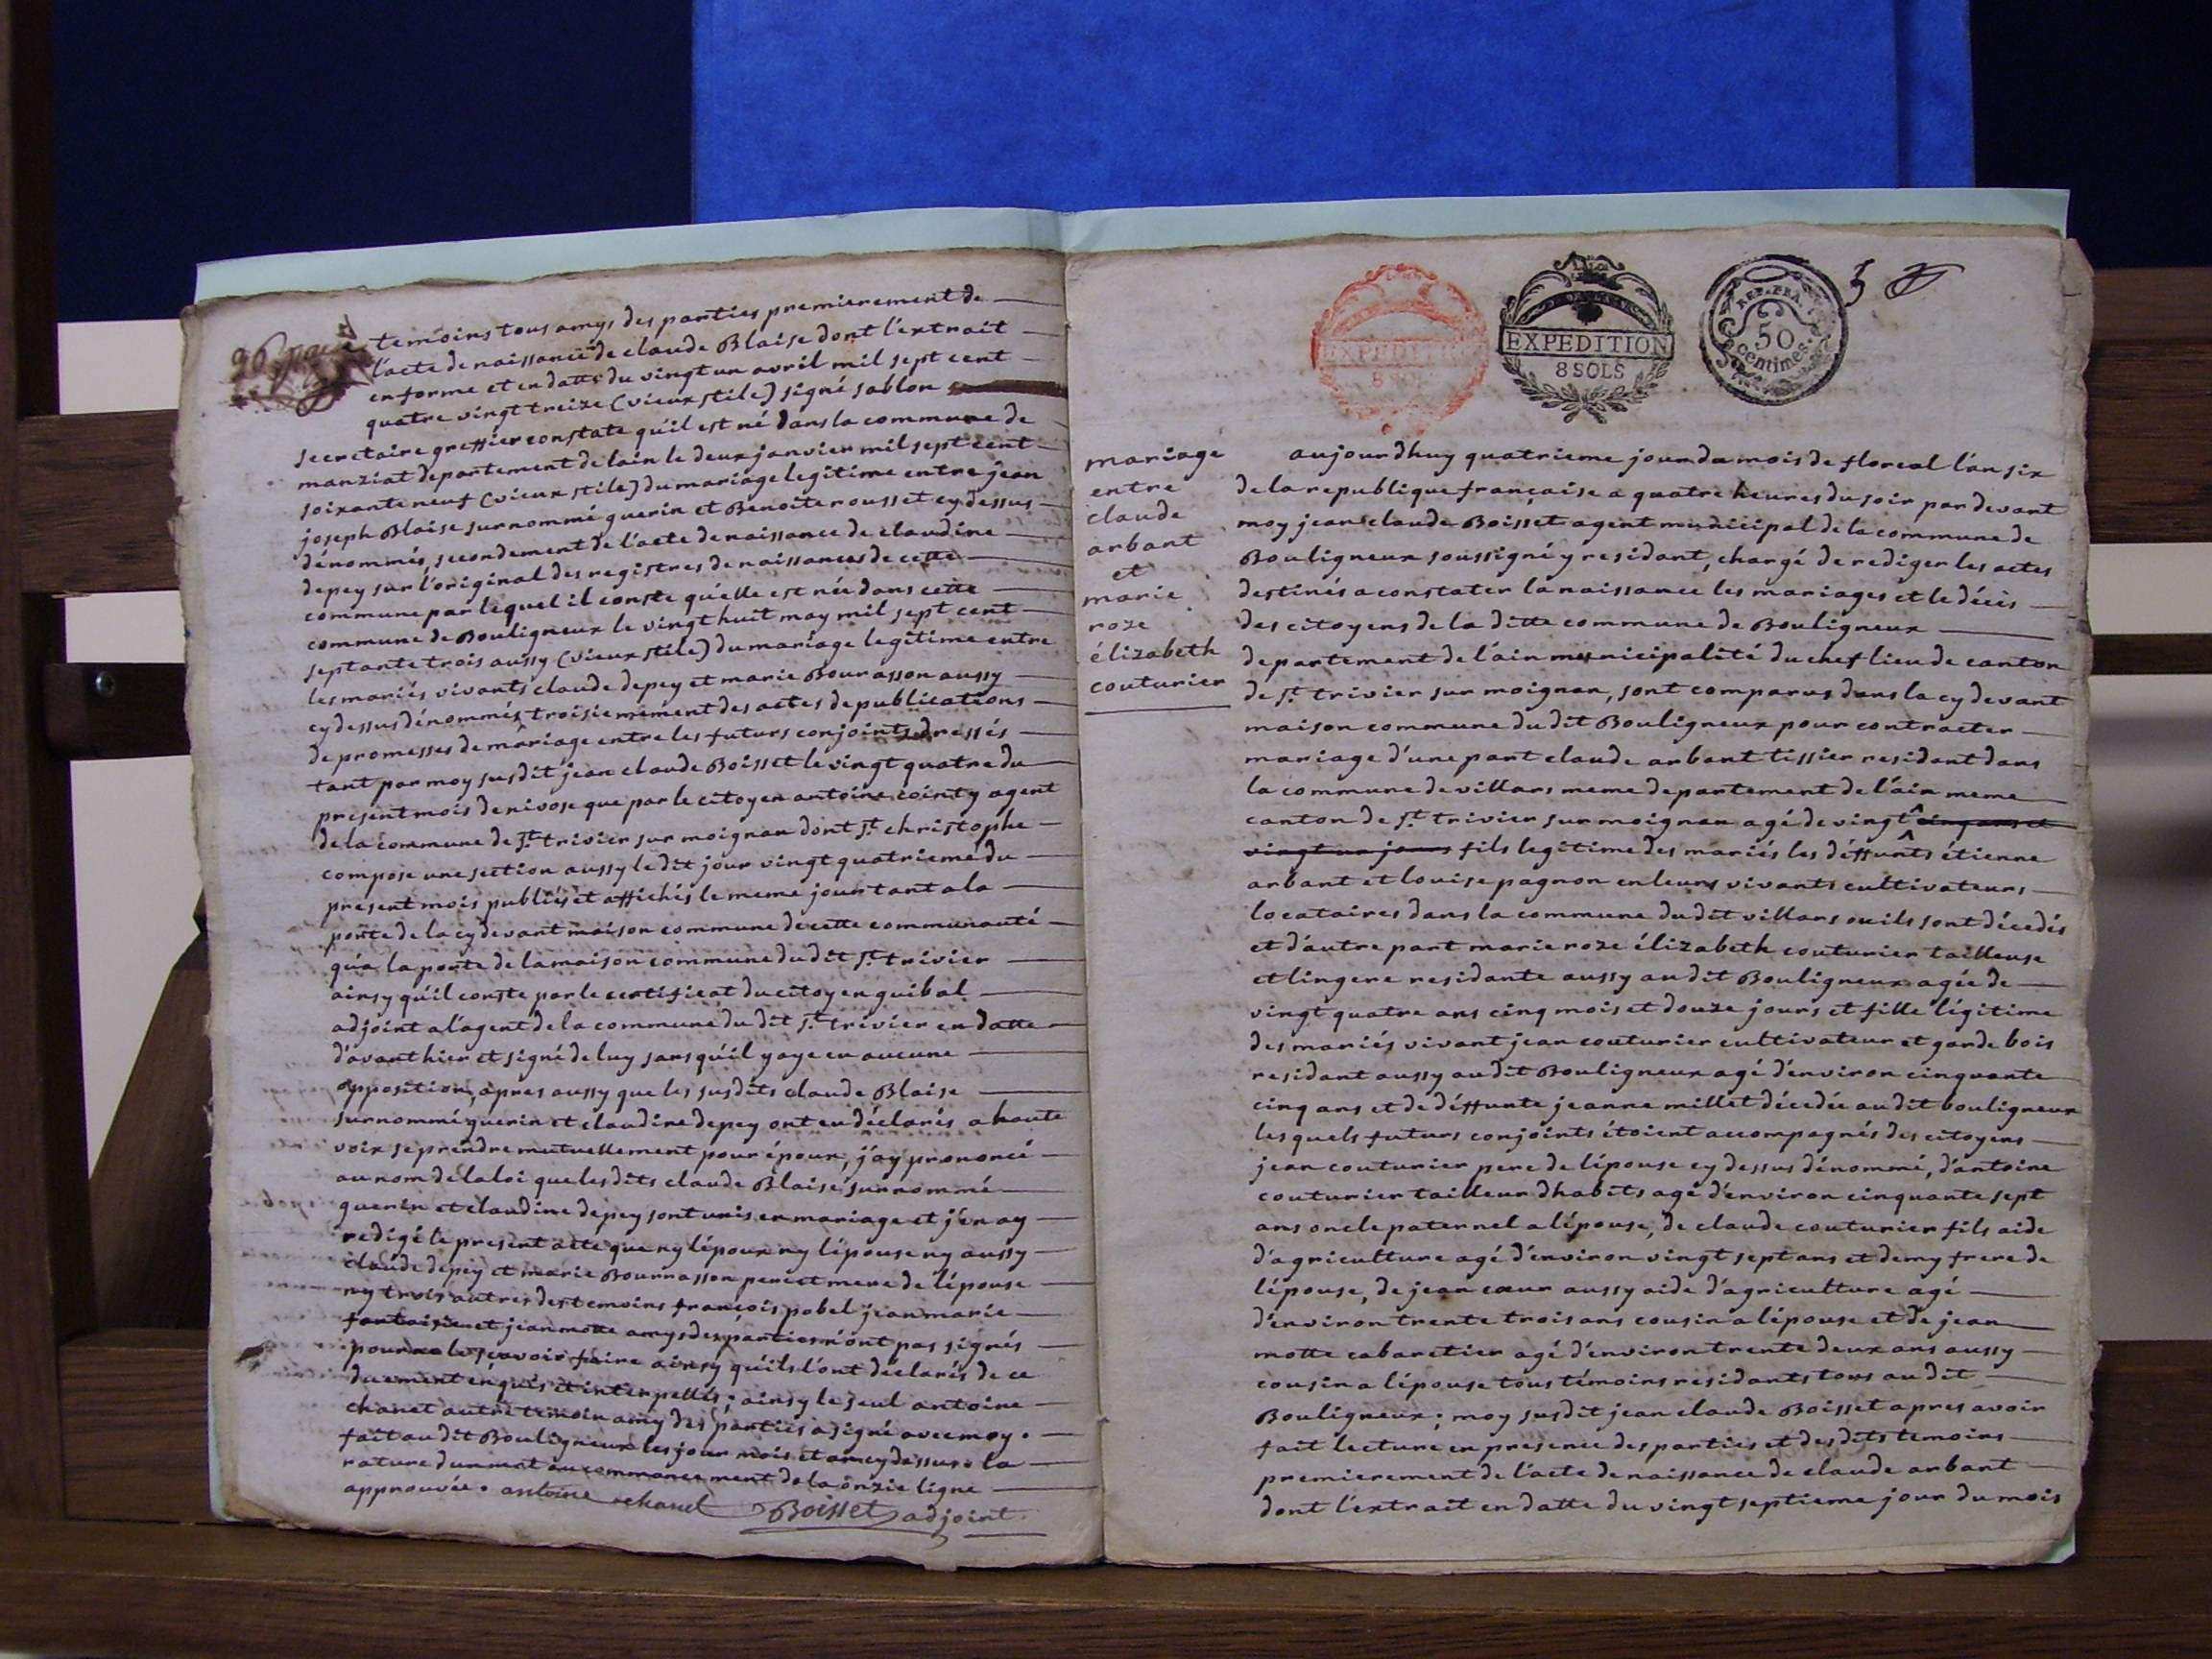 temoins tous amys des parties premierement de
l'acte de naissance de claude Blaise dont l'extrait
en forme et en datte du vingt un avril mil sept cent
quatre vingt treize (vieux stile) signé sablon
secretaire greffier constate qu'il est né dans la commune de
manziat departement de lain le deux janvier mil sept cent
soixante neuf (vieux stile) du mariage legitime entre jean
joseph Blaise surnommé guerin et Benoite rousset cy dessus
dénommés, secondement de l'acte de naissance de claudine
depey sur l'original des registres de naissances de cette
commune par lequel il conste qu'elle est née dans cette
commune de Bouligneux le vingt huit may mil sept cent
septante trois aussy (vieux stile) du mariage legitime entre
les mariés vivants claude depey et marie Bourasson aussy
cy dessus dénommés, troisiemement des actes de publications
de promesses de mariage entre les futurs conjoints dressés
tant par moy susdit jean claude Boisset le vingt quatre du
present mois de nivose que par le citoyen antoine cointy agent
de la commune de St trivier sur moignan dont St christophe
compose une section aussy le dit jour vingt quatrieme du
present mois publiés et affichés le meme jour tant a la
porte de la cy devant maison commune de cette communauté
qu'a la porte de la maison commune du dit St trivier
ainsy qu'il conste par le certificat du citoyen guibal
adjoint a l'agent de la commune du dit St trivier en datte
d'avant hier et signé de luy sans qu'il y aye eu aucune
opposition, apres aussy que les susdits claude Blaise
surnommé guerin et claudine depey ont eu déclarés a haute
voix se prendre mutuellement pour époux, j'ay prononcé
au nom de la loi que les dits claude Blaise surnommé
guerin et claudine depey sont unis en mariage et j'en ay
redigé le present acte que ny l'époux ny l'épouse ny aussy
claude depey et marie Bourrasson pere et mere de l'épouse
ny trois autres des temoins françois pobel jean marie
et jean motte amys des parties n'ont pas signés
pour ne le sçavoir faire ainsy qu'ils l'ont déclarés de ce
duement enquis et interpellés; ainsy le seul antoine
chanel autre temoin amy des parties a signé avec moy.
fait au dit Bouligneux les jour mois et an cy dessus. la
rature d'un mot au commencement de la onzie ligne
approuvée. antoine chanel Boisset adjoint
EXPEDITION
8 SOLS
EXPEDITION
8 SOLS
REP. FRA.
50
centimes.
5
mariage
entre
claude
arbant
et
marie
roze
élizabeth
couturier
aujourdhuy quatrieme jour du mois de floreal l'an six
de la republique française a quatre heures du soir par devant
moy jean claude Boisset agent municipal de la commune de
Bouligneux soussigné y residant, chargé de rediger les actes
destinés a constater la naissance les mariages et le décès
des citoyens de la ditte commune de Bouligneux
departement de l'ain municipalité du chef lieu de canton
de St trivier sur moignan, sont comparus dans la cy devant
maison commune du dit Bouligneux pour contracter
mariage d'une part claude arbant tissier residant dans
la commune de villars meme departement de l'ain meme
canton de St trivier sur moignan agé de vingt cinq ans et
vingt un jours fils legitime des mariés les déffunts étienne
arbant et louise pagnon en leurs vivants cultivateurs
locataires dans la commune du dit villars ou ils sont décedés
et d'autre part marie roze élizabeth couturier tailleuse
et lingere residante aussy au dit Bouligneux agée de
vingt quatre ans cinq mois et douze jours et fille légitime
des mariés vivant jean couturier cultivateur et garde bois
residant aussy au dit Bouligneux agé d'environ cinquante
cinq ans et de déffunte jeanne millet décedée au dit bouligneux
les quels futurs conjoints étoient accompagnés des citoyens
jean couturier pere de l'épouse cy dessus dénommé, d'antoine
couturier tailleur dhabits agé d'environ cinquante sept
ans oncle paternel a l'épouse, de claude couturier fils aide
d'agriculture agé d'environ vingt sept ans et demy frere de
l'épouse, de jean cœur aussy aide d'agriculture agé
d'environ trente trois ans cousin a l'épouse et de jean
motte cabaretier agé d'environ trente deux ans aussy
cousin a l'épouse tous témoins residants tous au dit
Bouligneux; moy susdit jean claude Boisset apres avoir
fait lecture en presence des parties et des dits temoins
premierement de l'acte de naissance de claude arbant
dont l'extrait en datte du vingt septieme jour du mois